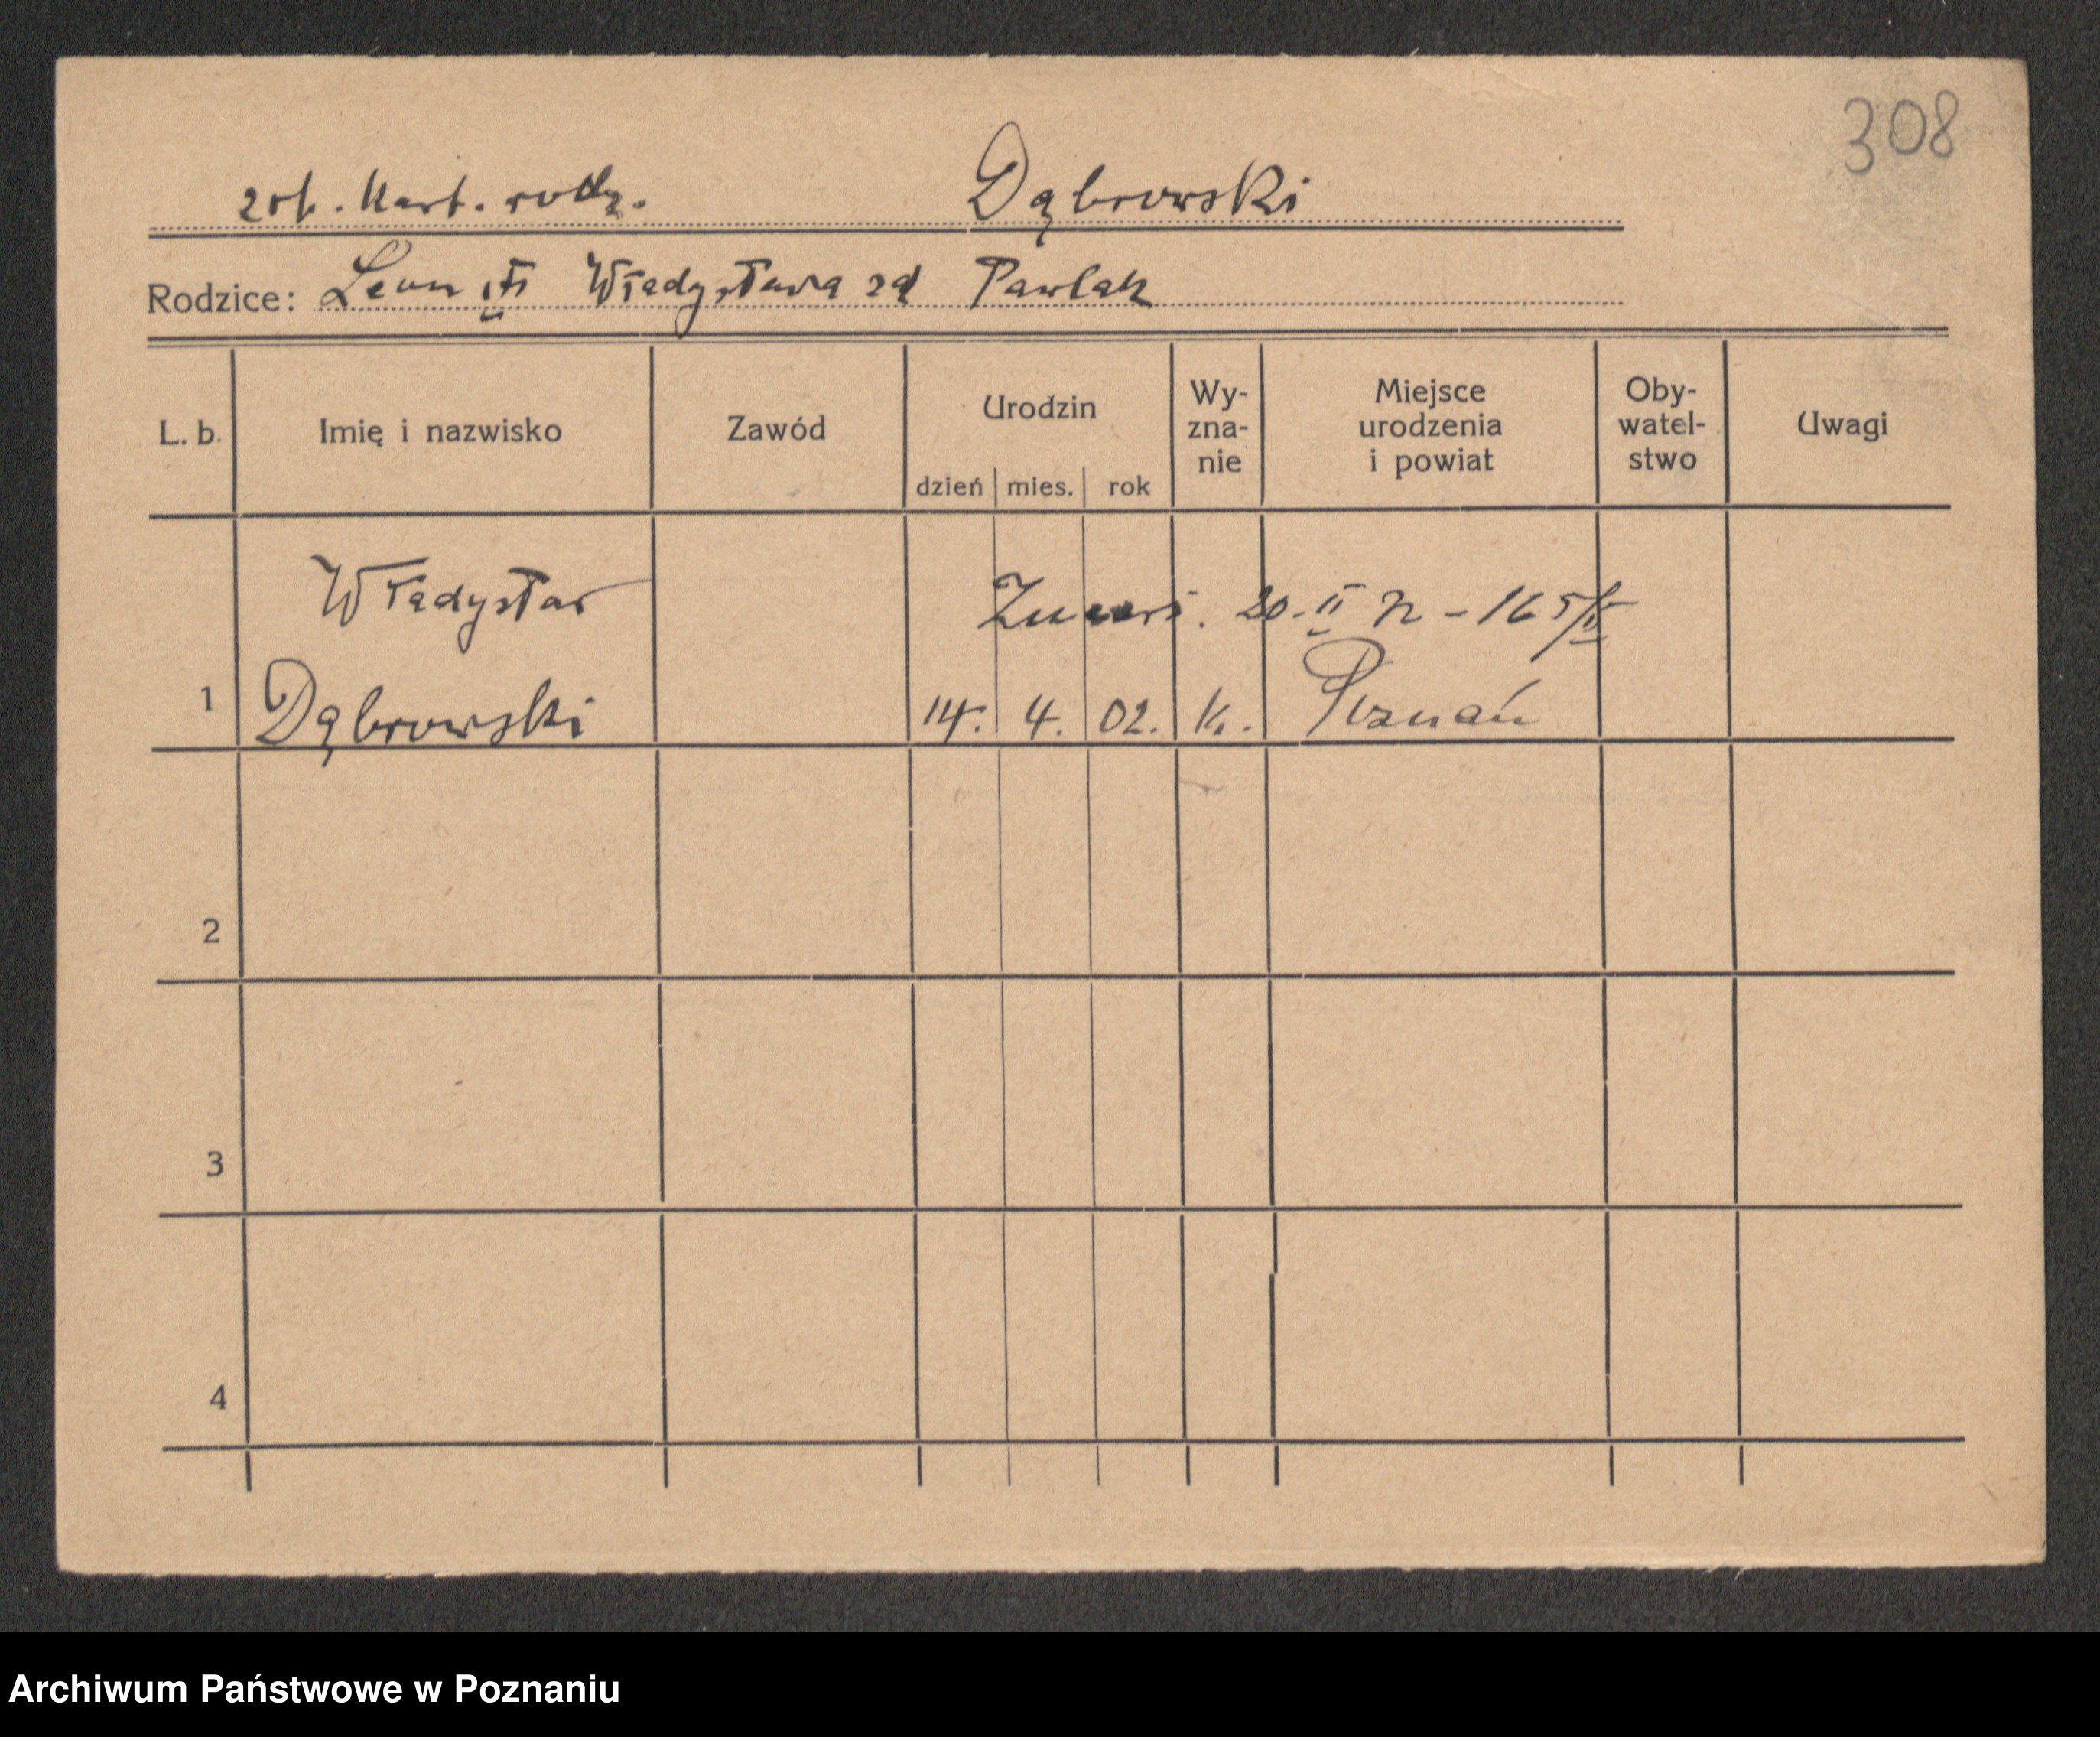 308
zob. Kart. rodz. Dąbrowski
Rodzice: Leon Władysława zd Pawlak
L. b. Imię i nazwisko Zawód Urodzin dzień mies. rok Wy-zna-nie Miejsce urodzenia i powiat Oby-watel-stwo Uwagi
Władysław 20. II
1 Dąbrowski 14. 4. 02. K. Poznań
2
3
4
Archiwum Państwowe w Poznaniu